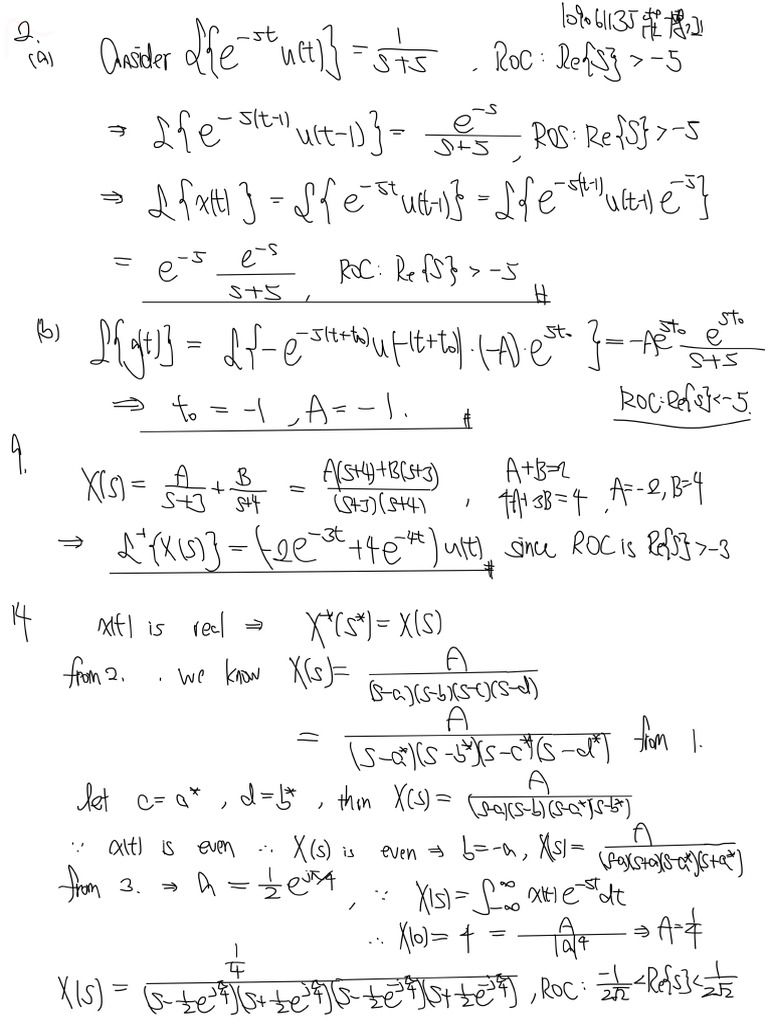 109061135
2.
(a) Consider ℒ{e^{-5t} u(t)} = 1/(s+5) , ROC: Re{s} > -5
⇒ ℒ{e^{-5(t-1)} u(t-1)} = e^{-s}/(s+5) , ROS: Re{s} > -5
⇒ ℒ{x(t)} = ℒ{e^{-5t} u(t-1)} = ℒ{e^{-5(t-1)} u(t-1) e^{-5}}
= e^{-5} e^{-s}/(s+5) , ROC: Re{s} > -5 #
(b) ℒ{g(t)} = ℒ{-e^{-5(t+t₀)} u(-(t+t₀)) · (-A) · e^{5t₀}} = -Ae^{5t₀} e^{st₀}/(s+5)
⇒ t₀ = -1 , A = -1. # ROC: Re{s} < -5.
9.
X(s) = A/(s+3) + B/(s+4) = (A(s+4)+B(s+3))/((s+3)(s+4)) , A+B=2 4A+3B=4 , A=-2, B=4
⇒ ℒ⁻¹{X(s)} = (-2e^{-3t} + 4e^{-4t}) u(t) # , since ROC is Re{s} > -3
14 x(t) is real ⇒ X*(s*) = X(s)
from 2. . we know X(s) = A/((s-a)(s-b)(s-c)(s-d))
= A/((s-a*)(s-b*)(s-c*)(s-d*)) from 1.
let c = a* , d = b* , then X(s) = A/((s-a)(s-b)(s-a*)(s-b*))
∵ x(t) is even ∴ X(s) is even ⇒ b=-a, X(s) = A/((s-a)(s+a)(s-a*)(s+a*))
from 3. ⇒ a = 1/2 e^{jπ/4} , ∵ X(s) = ∫_{-∞}^{∞} x(t) e^{-st} dt
∴ X(0) = 4 = A/|a|⁴ ⇒ A = 1/4
X(s) = (1/4)/((s-1/2 e^{jπ/4})(s+1/2 e^{jπ/4})(s-1/2 e^{-jπ/4})(s+1/2 e^{-jπ/4})) , ROC: -1/(2√2) < Re{s} < 1/(2√2)